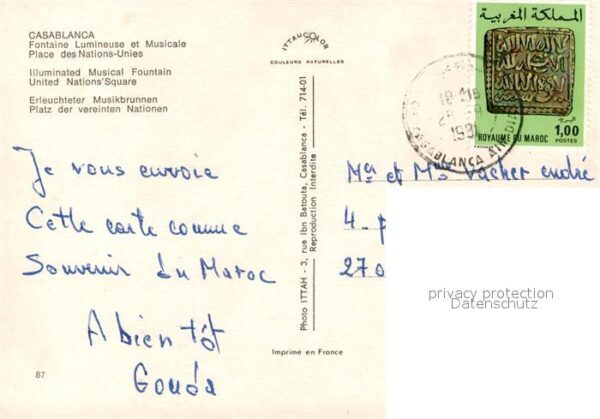 CASABLANCA
Fontaine Lumineuse et Musicale
Place des Nations-Unies
Illuminated Musical Fountain
United Nations'Square
Erleuchteter Musikbrunnen
Platz der vereinten Nationen
ITTAHCOLOR
COULEURS NATURELLES
المملكة المغربية
البريد
1,00
ROYAUME DU MAROC
POSTES
CASABLANCA
Je vous envoie
Cette carte comme
Souvenir du Maroc
A bientôt
Gouda
87
Photo ITTAH - 3, rue Ibn Batouta, Casablanca - Tél. 714-01
Reproduction Interdite
Imprimé en France
Mr et Mme Vacher andré
4-
270
privacy protection
Datenschutz